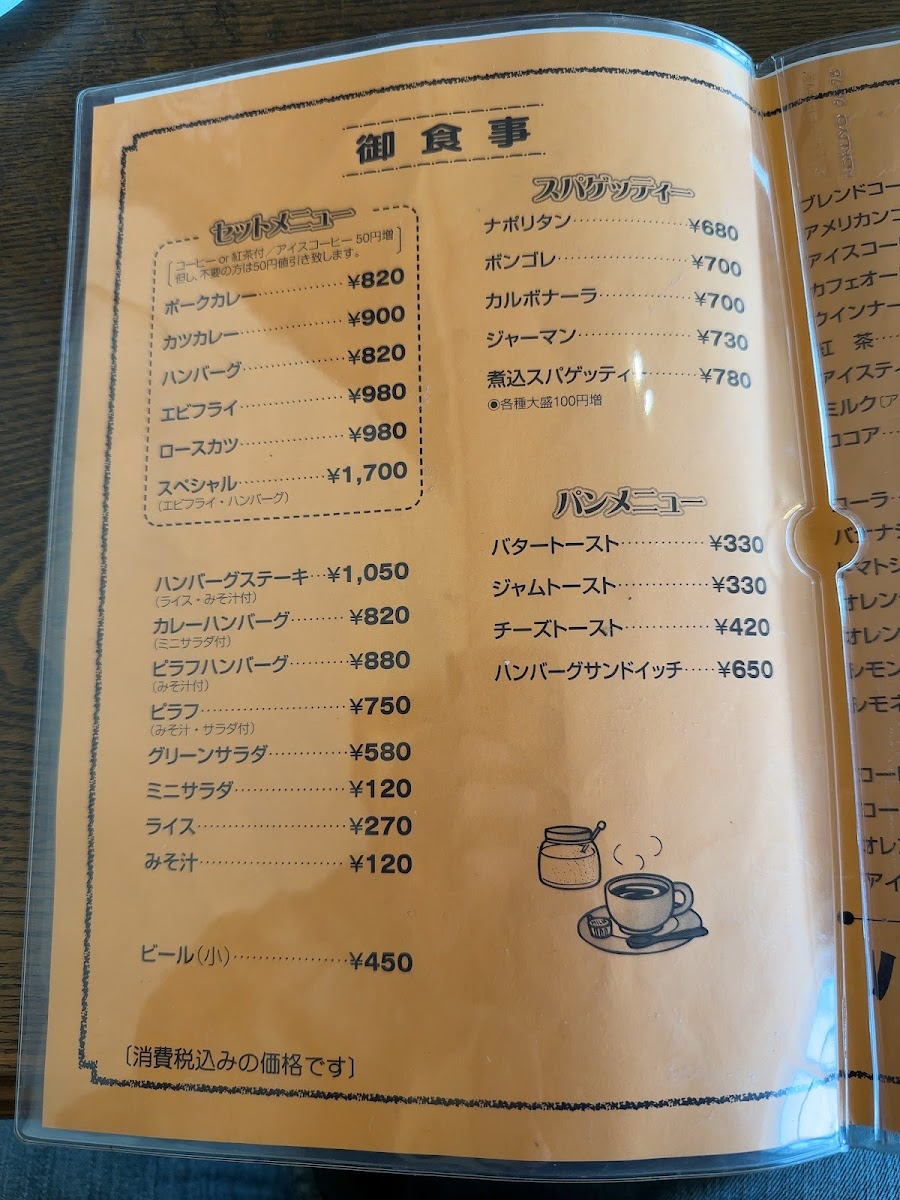 御食事
セットメニュー
〔コーヒー or 紅茶付／アイスコーヒー 50円増
但し、不要の方は50円値引き致します。〕
ポークカレー ¥820
カツカレー ¥900
ハンバーグ ¥820
エビフライ ¥980
ロースカツ ¥980
スペシャル ¥1,700
(エビフライ・ハンバーグ)
ハンバーグステーキ ¥1,050
(ライス・みそ汁付)
カレーハンバーグ ¥820
(ミニサラダ付)
ピラフハンバーグ ¥880
(みそ汁付)
ピラフ ¥750
(みそ汁・サラダ付)
グリーンサラダ ¥580
ミニサラダ ¥120
ライス ¥270
みそ汁 ¥120
ビール(小) ¥450
〔消費税込みの価格です〕
スパゲッティー
ナポリタン ¥680
ボンゴレ ¥700
カルボナーラ ¥700
ジャーマン ¥730
煮込スパゲッティー ¥780
◉各種大盛100円増
パンメニュー
バタートースト ¥330
ジャムトースト ¥330
チーズトースト ¥420
ハンバーグサンドイッチ ¥650
MILK
ブレンドコー
アメリカンコ
アイスコー
カフェオー
ウインナー
紅 茶
アイステ
ミルク(ア
ココア
コーラ
バナナ
トマトジ
オレン
オレン
レモン
レモネ
コー
コー
オレ
アイ